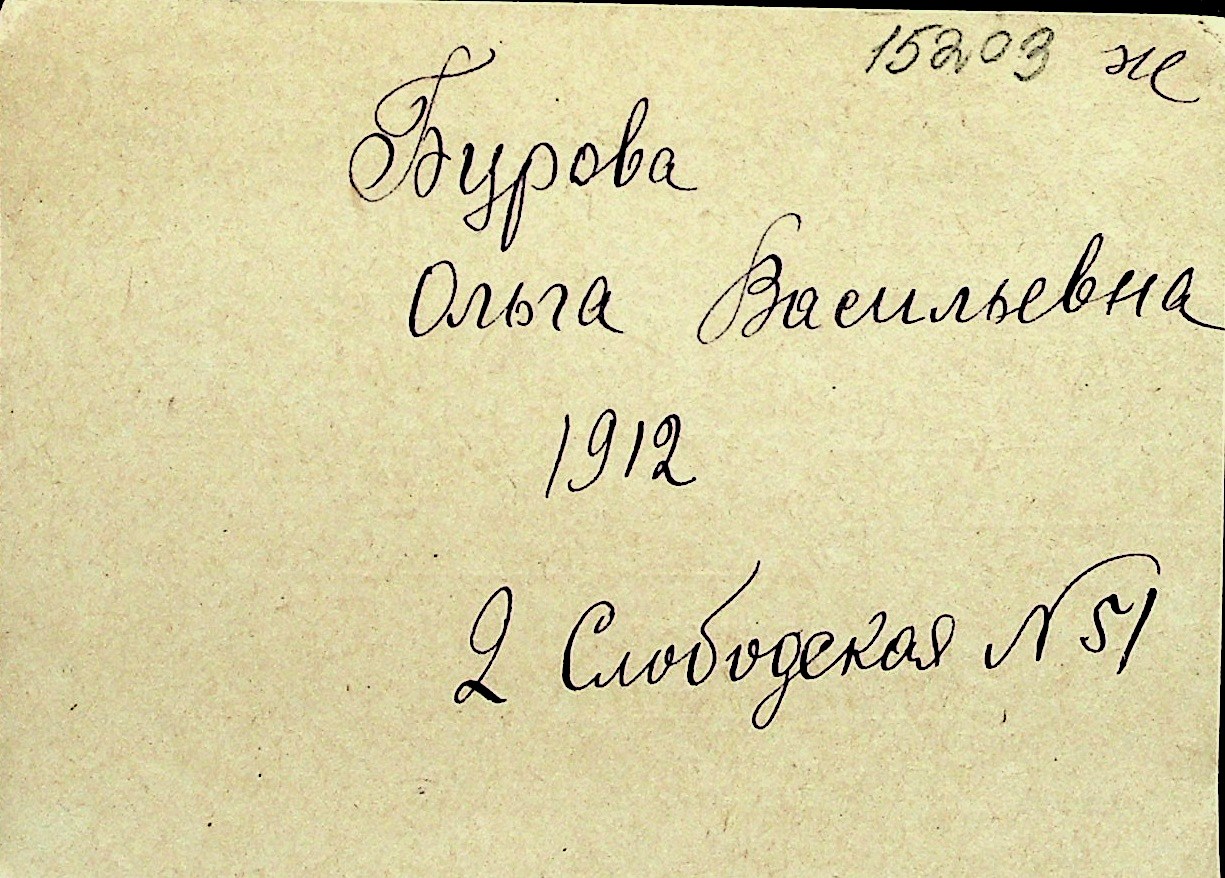 15203 ж
Бурова
Ольга Васильевна
1912
2 Слободская N 51